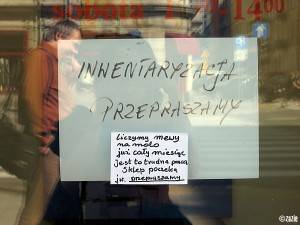 sobota
14⁰⁰
INWENTARYZACJA
PRZEPRASZAMY
Liczymy mewy
na molo
już cały miesiąc
jest to trudna praca
Sklep poczeka
przepraszamy
© zazie